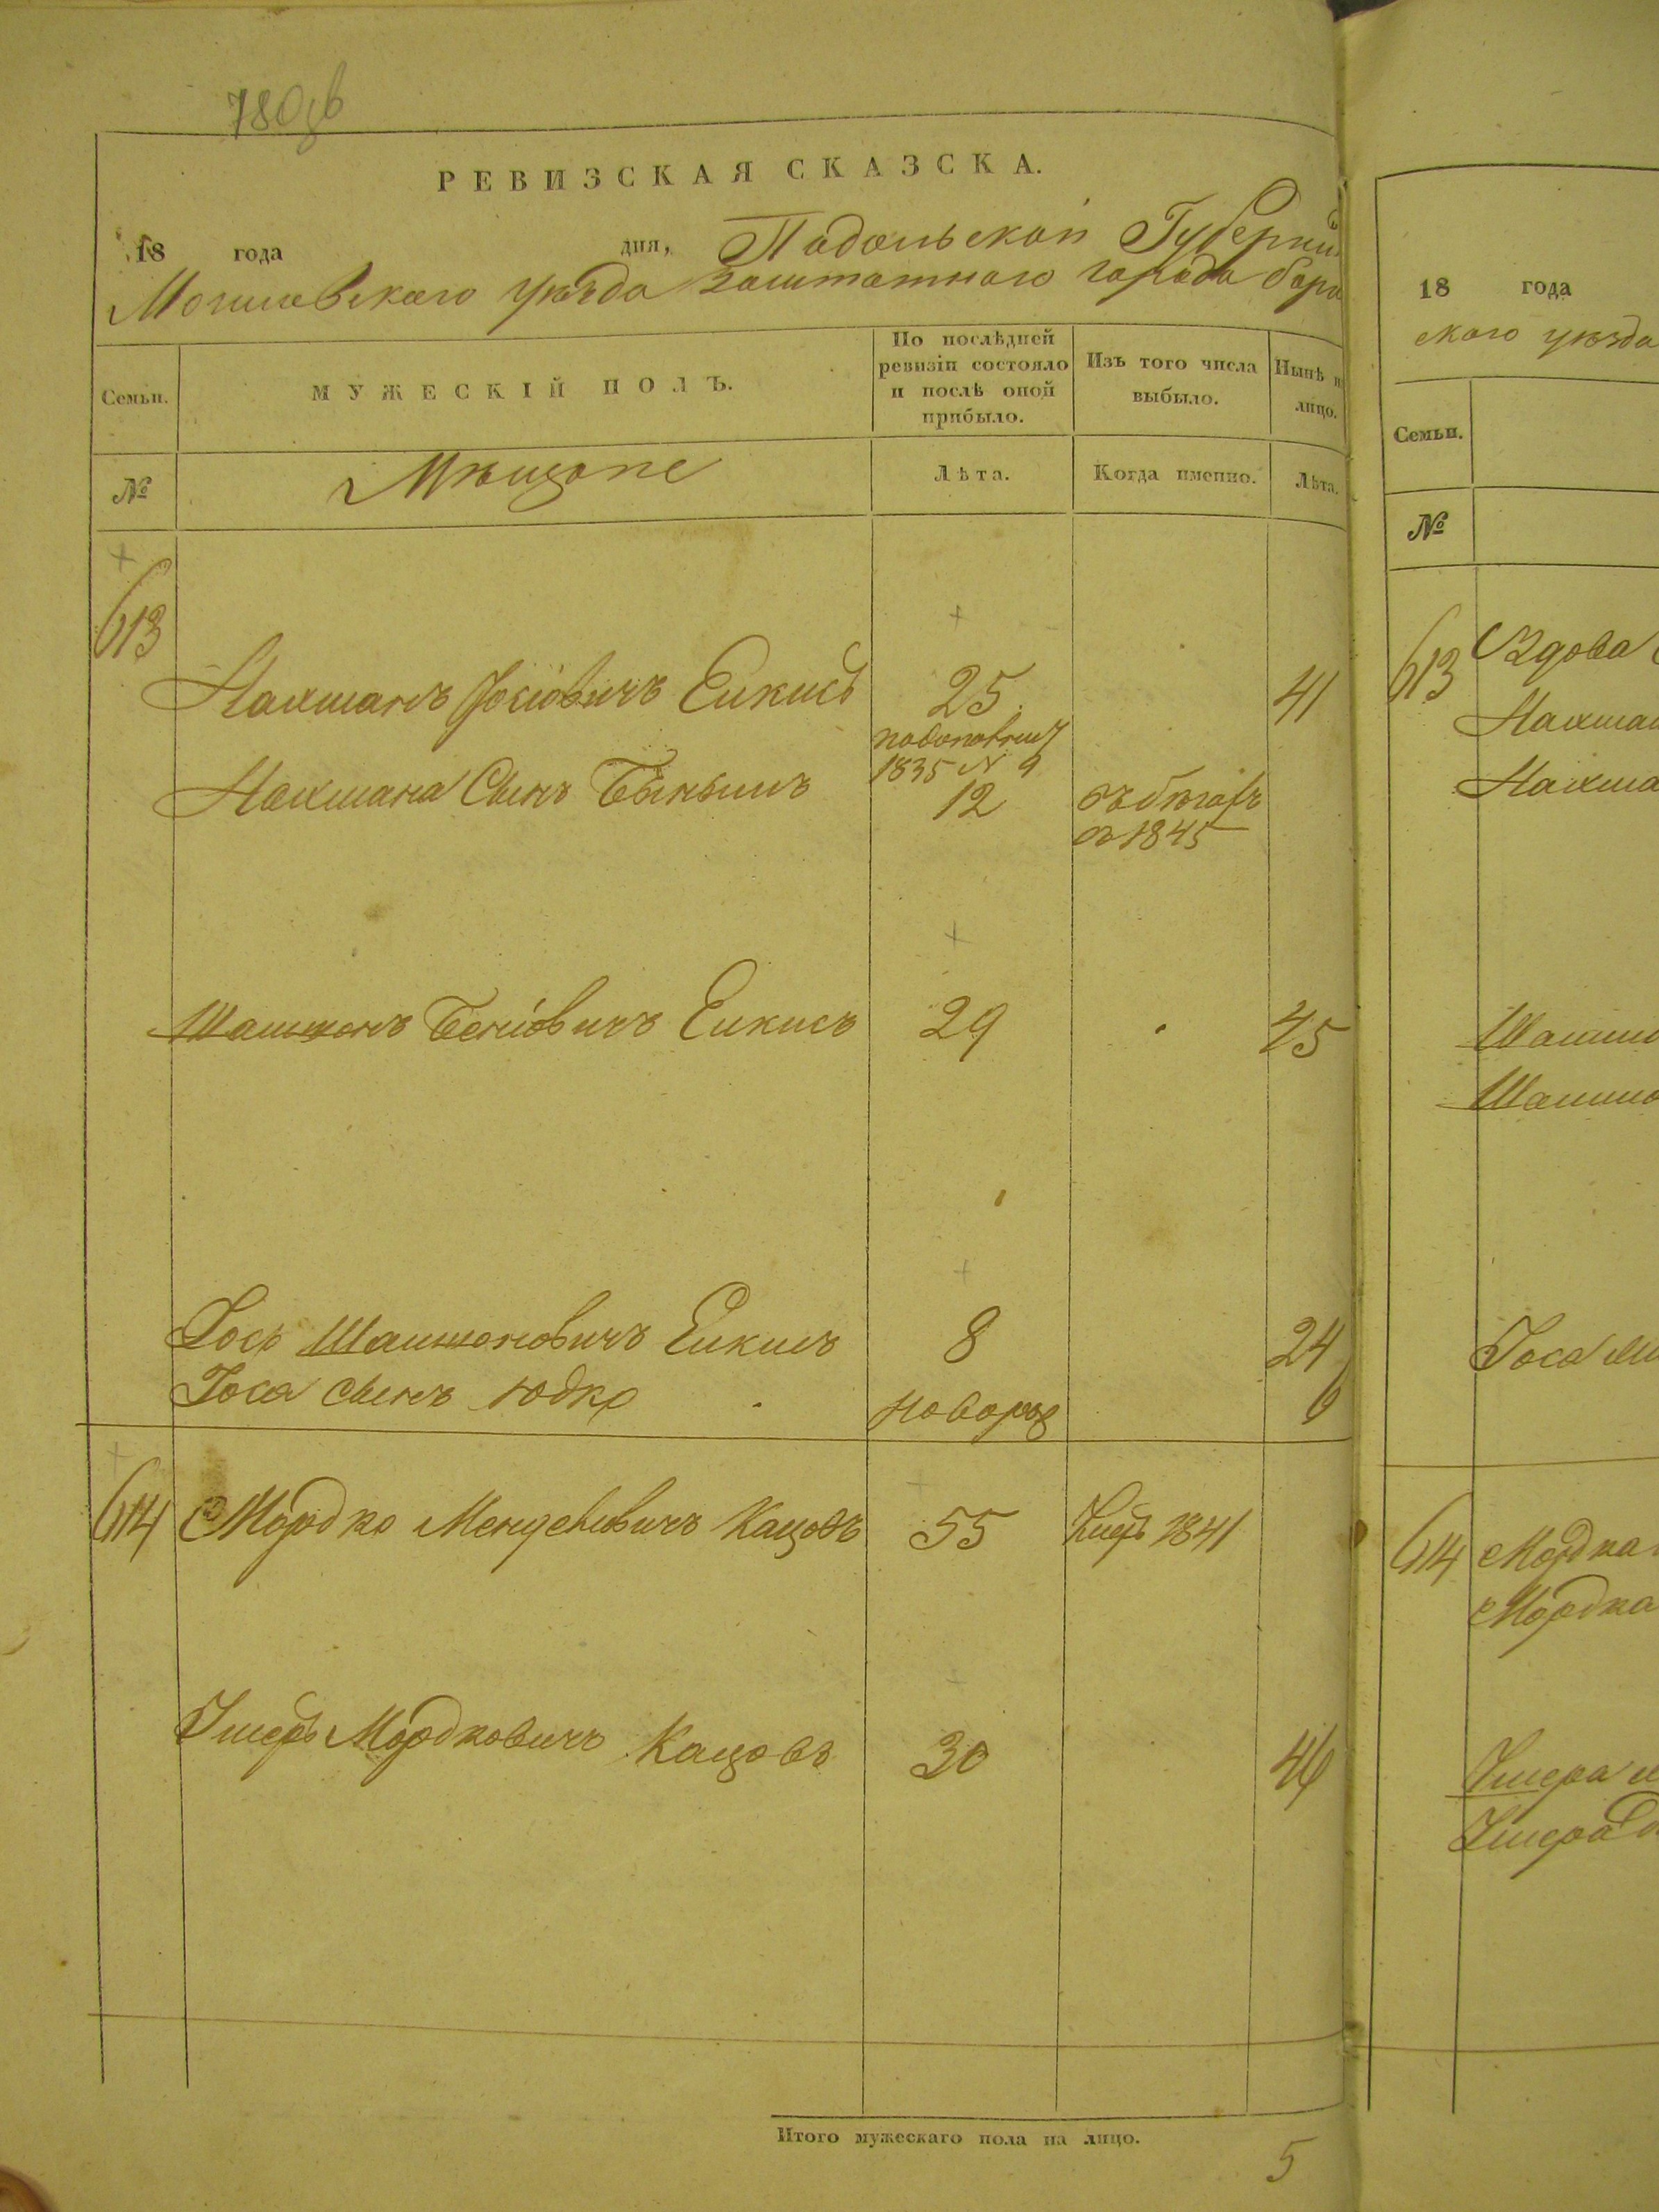 780
РЕВИЗСКАЯ СКАЗСКА.
18 года дня, Подольской Губерніи
Могилевского уѣзда Заштатного города бара
Семьи. МУЖЕСКІЙ ПОЛЪ. По послѣдней ревизіи состояло и послѣ оной прибыло. Изъ того числа выбыло. Нынѣ на лицо.
№ Мѣщане Лѣта. Когда именно. Лѣта.
613
Нахманъ Іосіовичъ Еикисъ 25 41
1835 № 9
Нахмана Сынъ 12
въ бѣгахъ
съ 1845
Шашмонъ Беніовичъ Еикисъ 29 45
Іось Шашмоновичъ Еикисъ 8 24
Іося сынъ Юдко новорож 6
614 Мордко Менделіовичъ Кацовъ 55 Умеръ 1841
Ушеръ Мордковичъ Кацовъ 30 46
Итого мужескаго пола на лицо.
5
18 года
ского уѣзда
Семьи.
№
613 Вдова
Нахма
Нахма
Шашмо
Шашмо
Іося
614 Мордка
Мордка
Ушера
Ушера